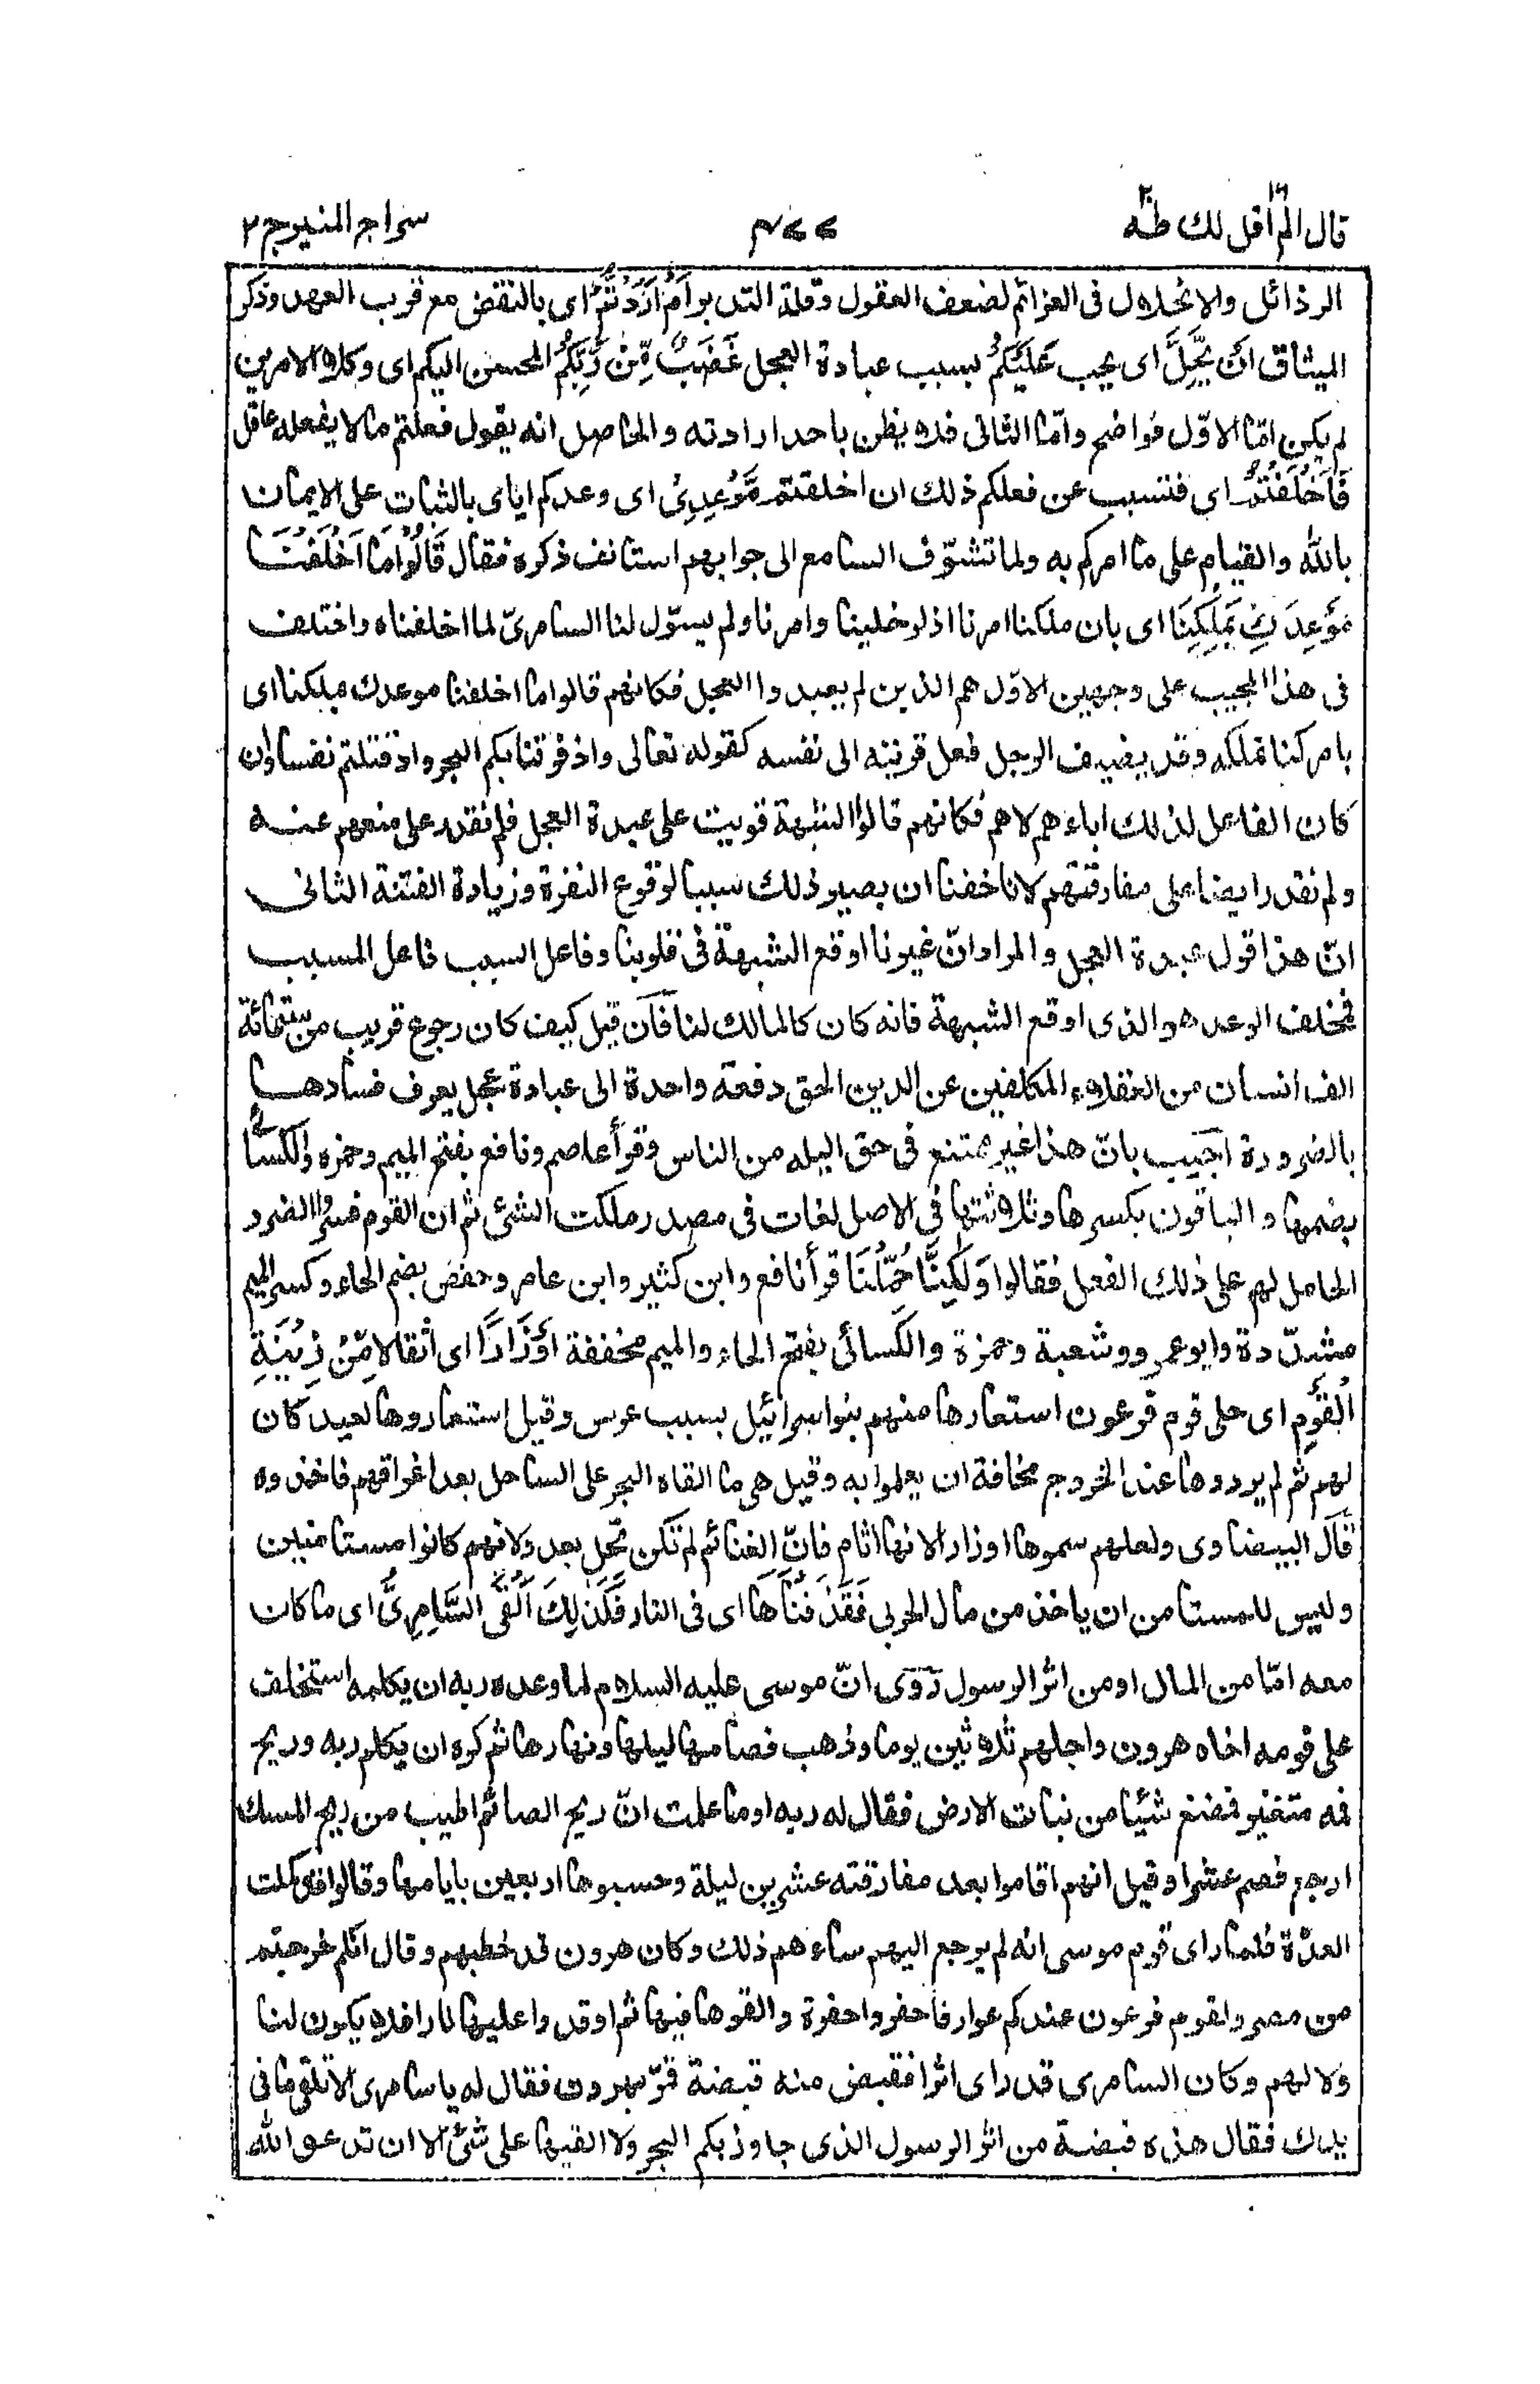 قال الم اقل لك ١٦ طه ٢٠
٤٧٧
سراج المنير ج ٢
الرذائل والانحلال فى العزائم لضعف العقول وقلة التدبر اَمْ اَرَدْتُّمْ اى بالنقض مع قرب العهد وذكر
الميثاق اَنْ يَّحِلَّ اى يجب عَلَيْكُمْ بسبب عبادة العجل غَضَبٌ مِّنْ رَّبِّكُمْ المحسن اليكم اى وكلا الامرين
لم يكن امّا الاوّل فواضح وامّا الثانى فلا يظن باحد ارادته والحاصل انه يقول فعلتم ما لا يفعله عاقل
فَاَخْلَفْتُمْ اى فتسبب عن فعلكم ذلك ان اخلفتم مَّوْعِدِىْ اى وعدكم اياى بالثبات على الايمان
بالله والقيام على ما امركم به ولما تشوّف السامع الى جوابهم استانف ذكره فقال قَالُوْا مَا اَخْلَفْنَا
مَوْعِدَكَ بِمَلْكِنَا اى بان ملكنا امرنا اذ لو خلينا وامرنا ولم يسوّل لنا السامرىّ لما اخلفناه واختلف
فى هذا المجيب على وجهين الاوّل هم الذين لم يعبدوا العجل فكانهم قالوا ما اخلفنا موعدك بملكنا اى
بامر كنا نملكه وقد يضيف الرجل فعل قرينه الى نفسه كقوله تعالى واذ فرقنا بكم البحر واذ قتلتم نفسا وان
كان الفاعل لذلك اباءهم لا هم فكانهم قالوا الشبهة قويت على عبدة العجل فلم نقدر على منعهم عنه
ولم نقدر ايضا على مفارقتهم لانا خفنا ان يصير ذلك سببا لوقوع النفرة وزيادة الفتنة الثانى
انّ هذا قول عبدة العجل والمراد انّ غيرنا اوقع الشبهة فى قلوبنا وفاعل السبب فاعل المسبب
فمخلف الوعد هو الذى اوقع الشبهة فانه كان كالمالك لنا فَاَن قيل كيف كان رجوع قريب من ستمائة
الف انسان من العقلاء المكلفين عن الدين الحق دفعة واحدة الى عبادة عجل يعرف فسادها
بالضرورة اجيب بانّ هذا غير ممتنع فى حق البله من الناس وقرأ عاصم ونافع بفتح الميم وحمزه والكسائى
بضمها والباقون بكسرها وثلاثتها فى الاصل لغات فى مصدر ملكت الشئ ثم ان القوم فسروا الضرر
الحامل لهم على ذلك الفعل فقالوا وَلٰكِنَّا حُمِّلْنَا قرأ نافع وابن كثير وابن عامر وحفص بضم الحاء وكسر الميم
مشدّدة وابو عمرو وشعبة وحمزة والكسائى بفتح الحاء والميم مخففة اَوْزَارًا اى اثقالا مِّنْ زِيْنَةِ
الْقَوْمِ اى حلى قوم فرعون استعارها منهم بنو اسرائيل بسبب عرس وقيل استعاروها لعيد كان
لهم ثم لم يردوها عند الخروج مخافة ان يعلموا به وقيل هى ما القاه البحر على الساحل بعد اغراقهم فاخذوه
قال البيضاوى ولعلهم سموها اوزارا لانها اثام فانّ الغنائم لم تكن تحل بعد ولانهم كانوا مستامنين
وليس للمستامن ان ياخذ من مال الحربى فَقَذَفْنَاهَا اى فى النار فَكَذٰلِكَ اَلْقَى السَّامِرِىُّ اى ما كان
معه امّا من المال او من اثر الرسول روى انّ موسى عليه السلام لما وعده ربه ان يكلمه استخلف
على قومه اخاه هرون واجلهم ثلاثين يوما وذهب فصامها ليلها ونهارها ثم كره ان يكلم ربه وريح
فمه متغير فمضغ شيئا من نبات الارض فقال له ربه اوما علمت انّ ريح الصائم اطيب من ريح المسك
ارجع فصم عشرا وقيل انهم اقاموا بعد مفارقته عشرين ليلة وحسبوها اربعين بايامها وقالوا قد كملت
العدّة فلما راى قوم موسى انه لم يرجع اليهم ساءهم ذلك وكان هرون قد خطبهم وقال انكم خرجتم
من مصر ولقوم فرعون عندكم عوار فاحفروا حفرة والقوها فيها ثم اوقدوا عليها نارا فلا يكون لنا
ولا لهم وكان السامرى قد راى اثرا فقبض منه قبضة فمرّ بهرون فقال له يا سامرى الا تلقى ما فى
يدك فقال هذه قبضة من اثر الرسول الذى جاوز بكم البحر ولا القيها على شئ الا ان تدعو الله